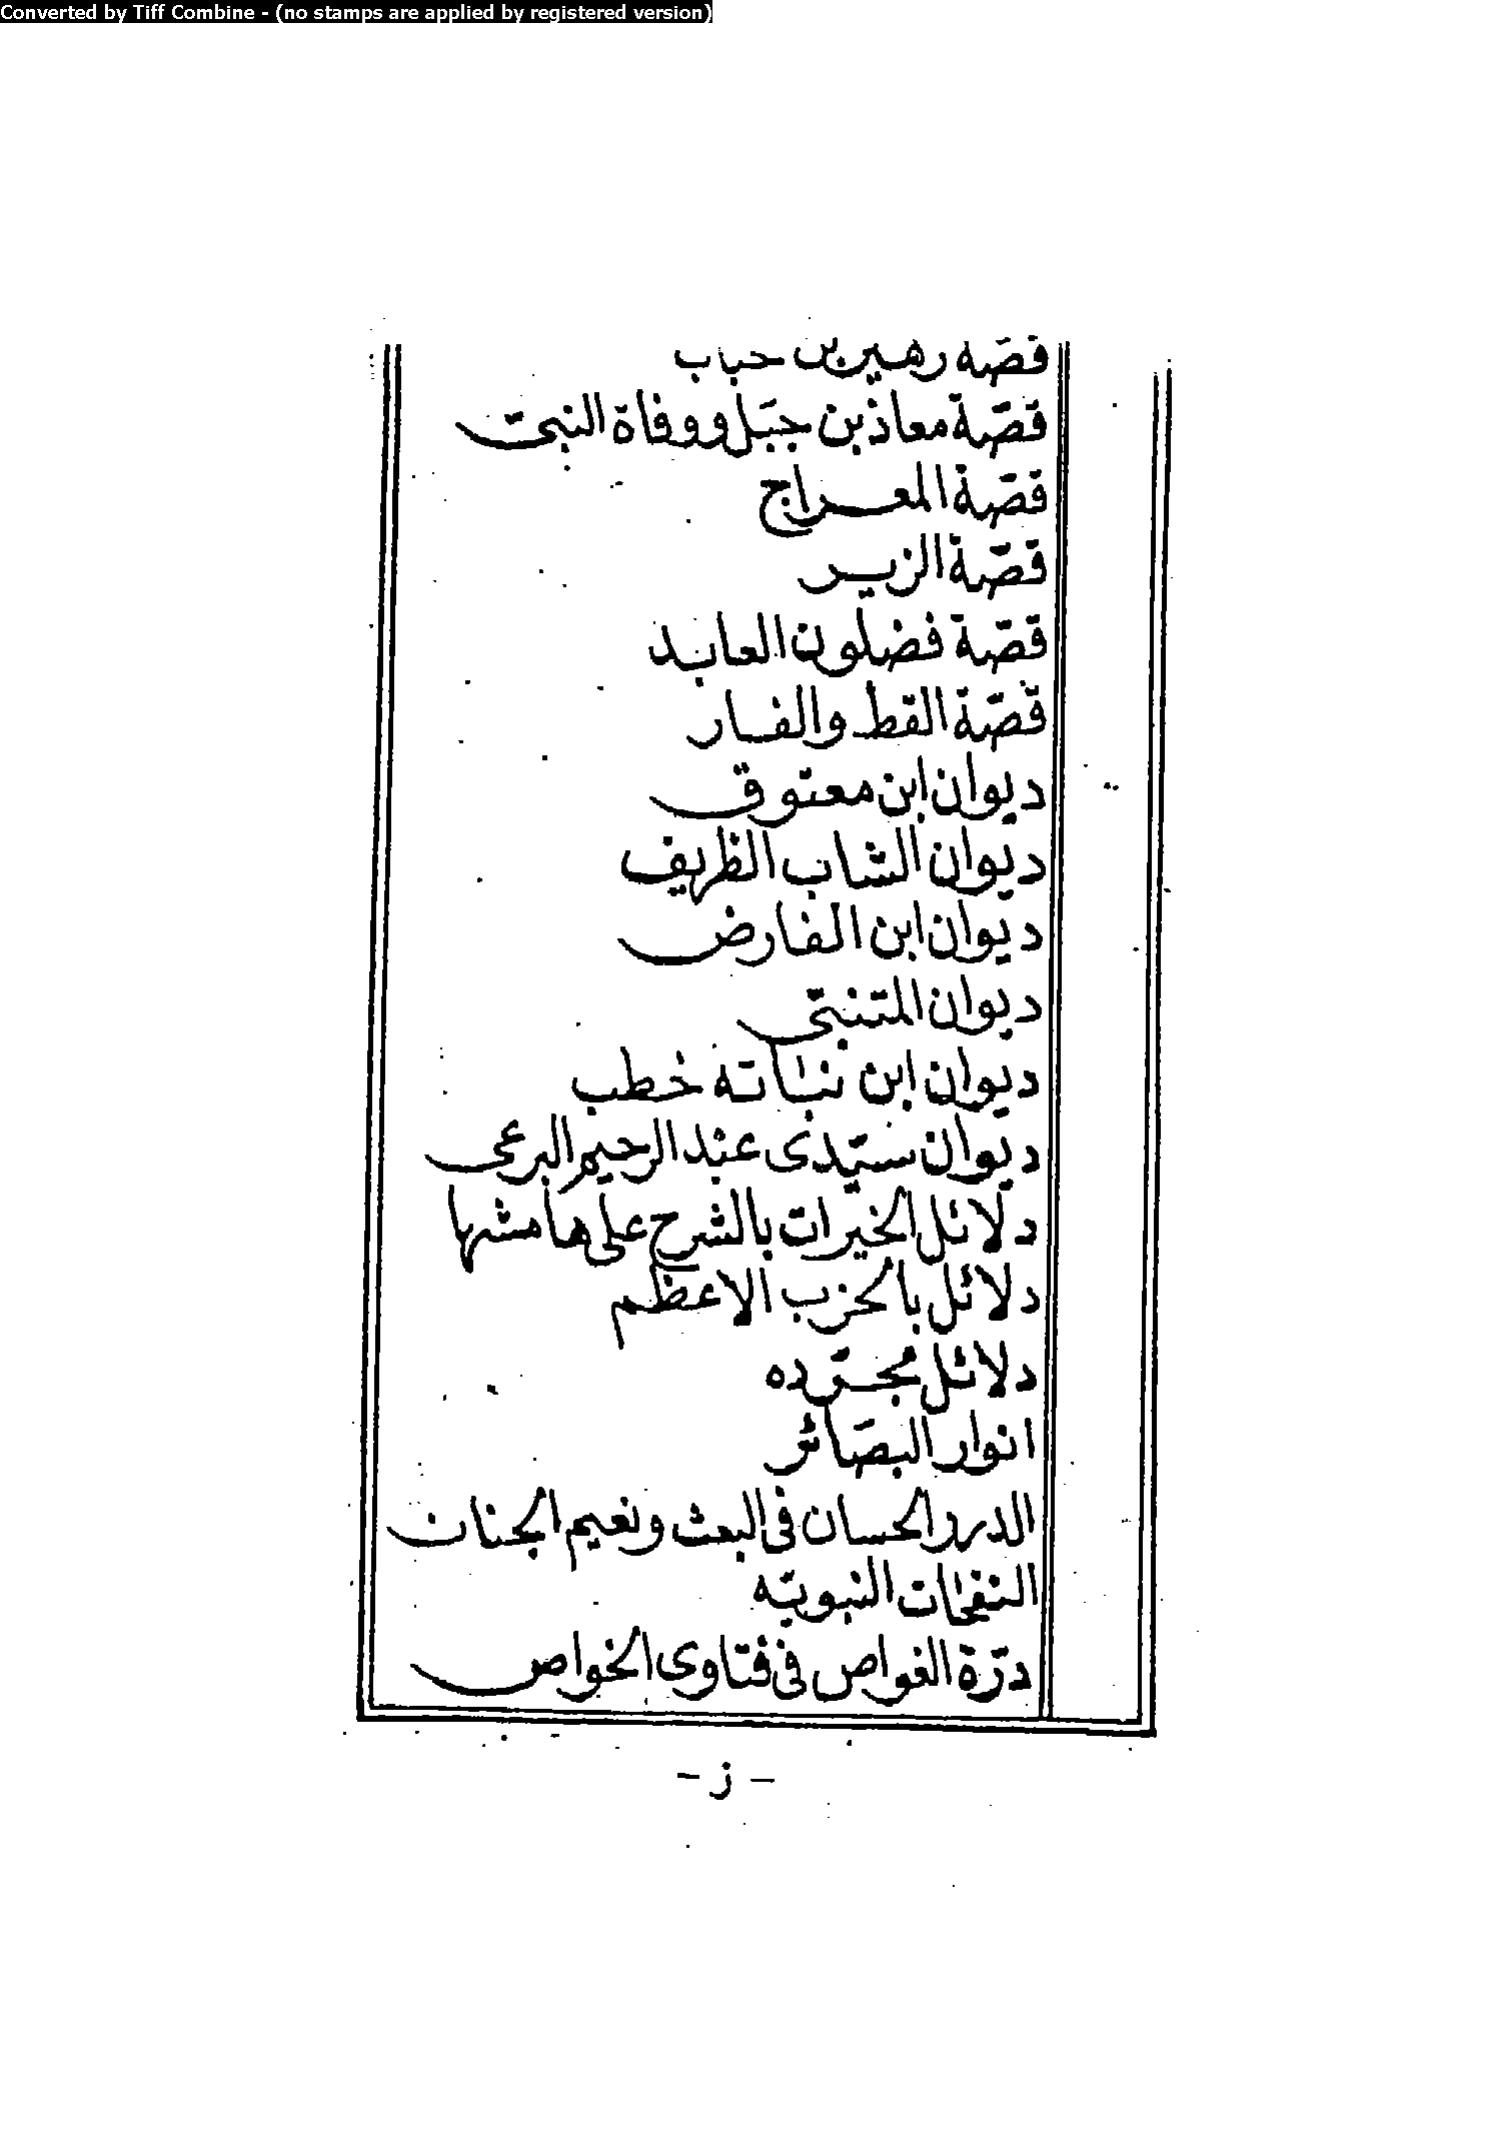 Converted by Tiff Combine - (no stamps are applied by registered version)
قصّة زهير بن حباب
قصّة معاذ بن جبَل ووفاة النبىّ
قصّة المعراج
قصّة الزير
قصّة فضلون العابد
قصّة القط والفار
ديوان ابن معتوق
ديوان الشاب الظريف
ديوان ابن الفارض
ديوان المتنبّى
ديوان ابن نباته خطب
ديوان سيّدى عبد الرحيم البرعى
دلائل الخيرات بالشرح على هامشها
دلائل بالحزب الاعظم
دلائل مجرّده
انوار البصَائر
الدرر الحسان فى البعث ونعيم الجنان
النفحات النبويّه
درّة الغواص فى فتاوى الخواص
- ز -